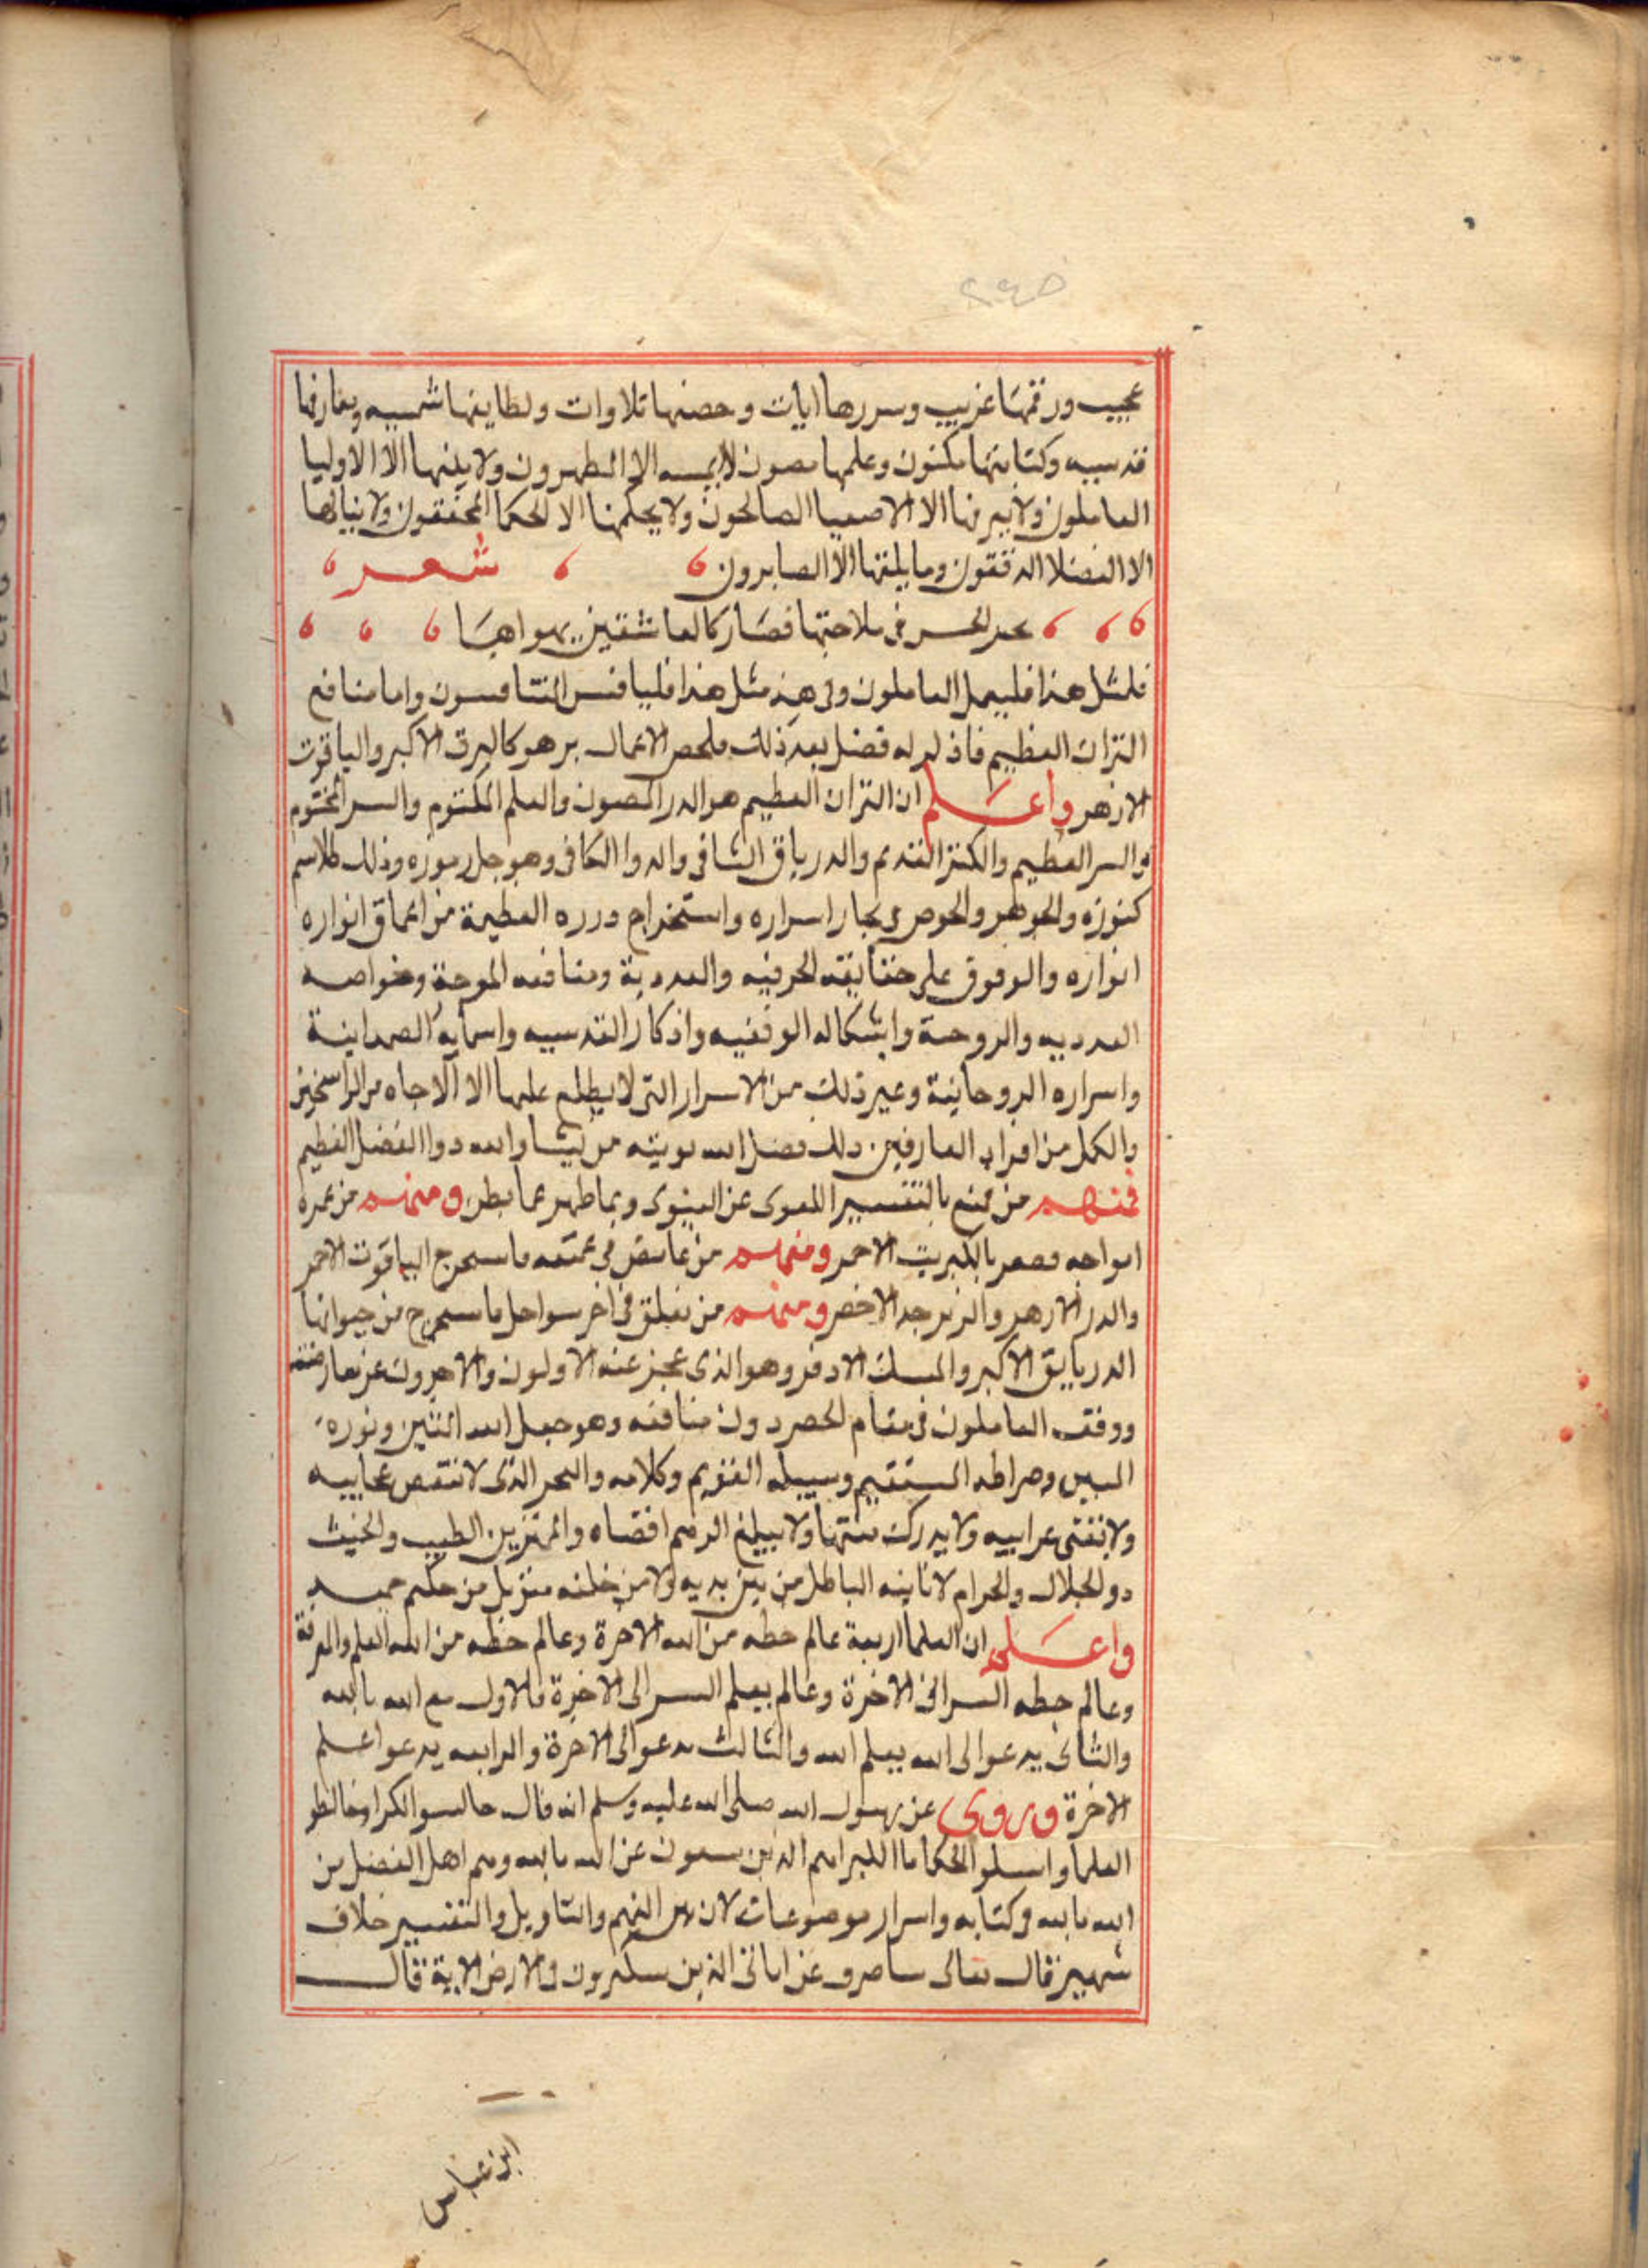 ٢٤٥
عجيب ورقمها غريب وسررها ايات وحصنها تلاوات ولطايفها شمسيه ومعارفها
قدسيه وكتابتها مكنون وعلمها مصون لا يمسه الا المطهرون ولا يلقها الا الاوليا
العاملون ولا يعرفها الا الاصفيا الصالحون ولا يحكمها الا الحكما المحققون ولا ينالها
الا الفضلا المدققون وما يلقها الا الصابرون شعر
الحسن في ملاحتها فصار كالعاشقين يهواها
فلمثل هذا فليعمل العاملون وفي هذه مثل هذا فليتنافس المتنافسون واما منافع
القران العظيم فاذ لم له فضل بعد ذلك ملخص الاعمال بر هو كالبرق الاكبر والياقوت
الازهر واعلم ان القران العظيم هو الدر المصون والعلم المكتوم والسر المختوم
والسر العظيم والكنز القديم والدرياق الشافي والدوا الكافي وهو حل رموزه وفك طلاسم
كنوزه والجوهر والخوص في بحار اسراره واستخراج درره العظيمة من اعماق انواره
انواره والوقوق على حقايقه الحرفيه والعددية ومنافعه الموحة وخواصه
العدديه والروحية واشكاله الوفقيه واذكار القدسيه واسمايه الصمدانية
واسراره الروحانية وغير ذلك من الاسرار التي لا يطلع عليها الا الاحاد من الراسخين
والكمل من افراد العارفين ذلك فضل الله يوتيه من يشا والله ذوا الفضل العظيم
فمنهم من قنع بالتفسير اللغوى عن المعنوى وبما ظهر عما بطن ومنهم من غمره
امواجه فصفر بالكبريت الاحمر ومنهم من غاص في عمقه فاستخرج الياقوت الاحمر
والدر الازهر والزبرجد الاخضر ومنهم من تعلق في اخر سواحل فاستخرج من حيواناتها
الدرياق الاكبر والمسك الادفر وهو الذى عجز عنه الاولون والاخرون عن معارضته
ووقف العاملون في مقام الحصر دون منافعه وهو حبل الله المتين ونوره
المبين وصراطه المستقيم وسبيله القويم وكلامه والبحر الذى لا تنقص عجايبه
ولا تفنى غرايبه ولا يدرك منتها ولا يبلغ الوهم اقصاه والمتميز بين الطيب والخبيث
دو الحلال والحرام لا ياتيه الباطل من بين يديه ولا من خلفه تنزيل من حكيم حميد
واعلم ان العلما اربعة عالم حظه من الله الاخرة وعالم حظه من الله العلم والمعرفة
وعالم حظه السر الى الاخرة وعالم بعلم السر الى الاخرة فالاول مع الله بالله
والثانى يدعوا الى الله بعلم الله والثالث يدعوا الى الاخرة والرابعه يدعوا علم
الاخرة وروى عن رسول الله صلى الله عليه وسلم انه قال جالسوا الكبرا وخالطو
العلما واسلوا الحكما فاالكبراهم الذين يسمعون عن الله بالله وهم اهل الفضل من
الله بالله في كتابه واسرار موضوعاته لان بين الفهم والتاويل والتفسير خلاف
شهير قال تعالى ساصرف عن اياتى الذين يتكبرون في الارض الاية قال
ابن عباس